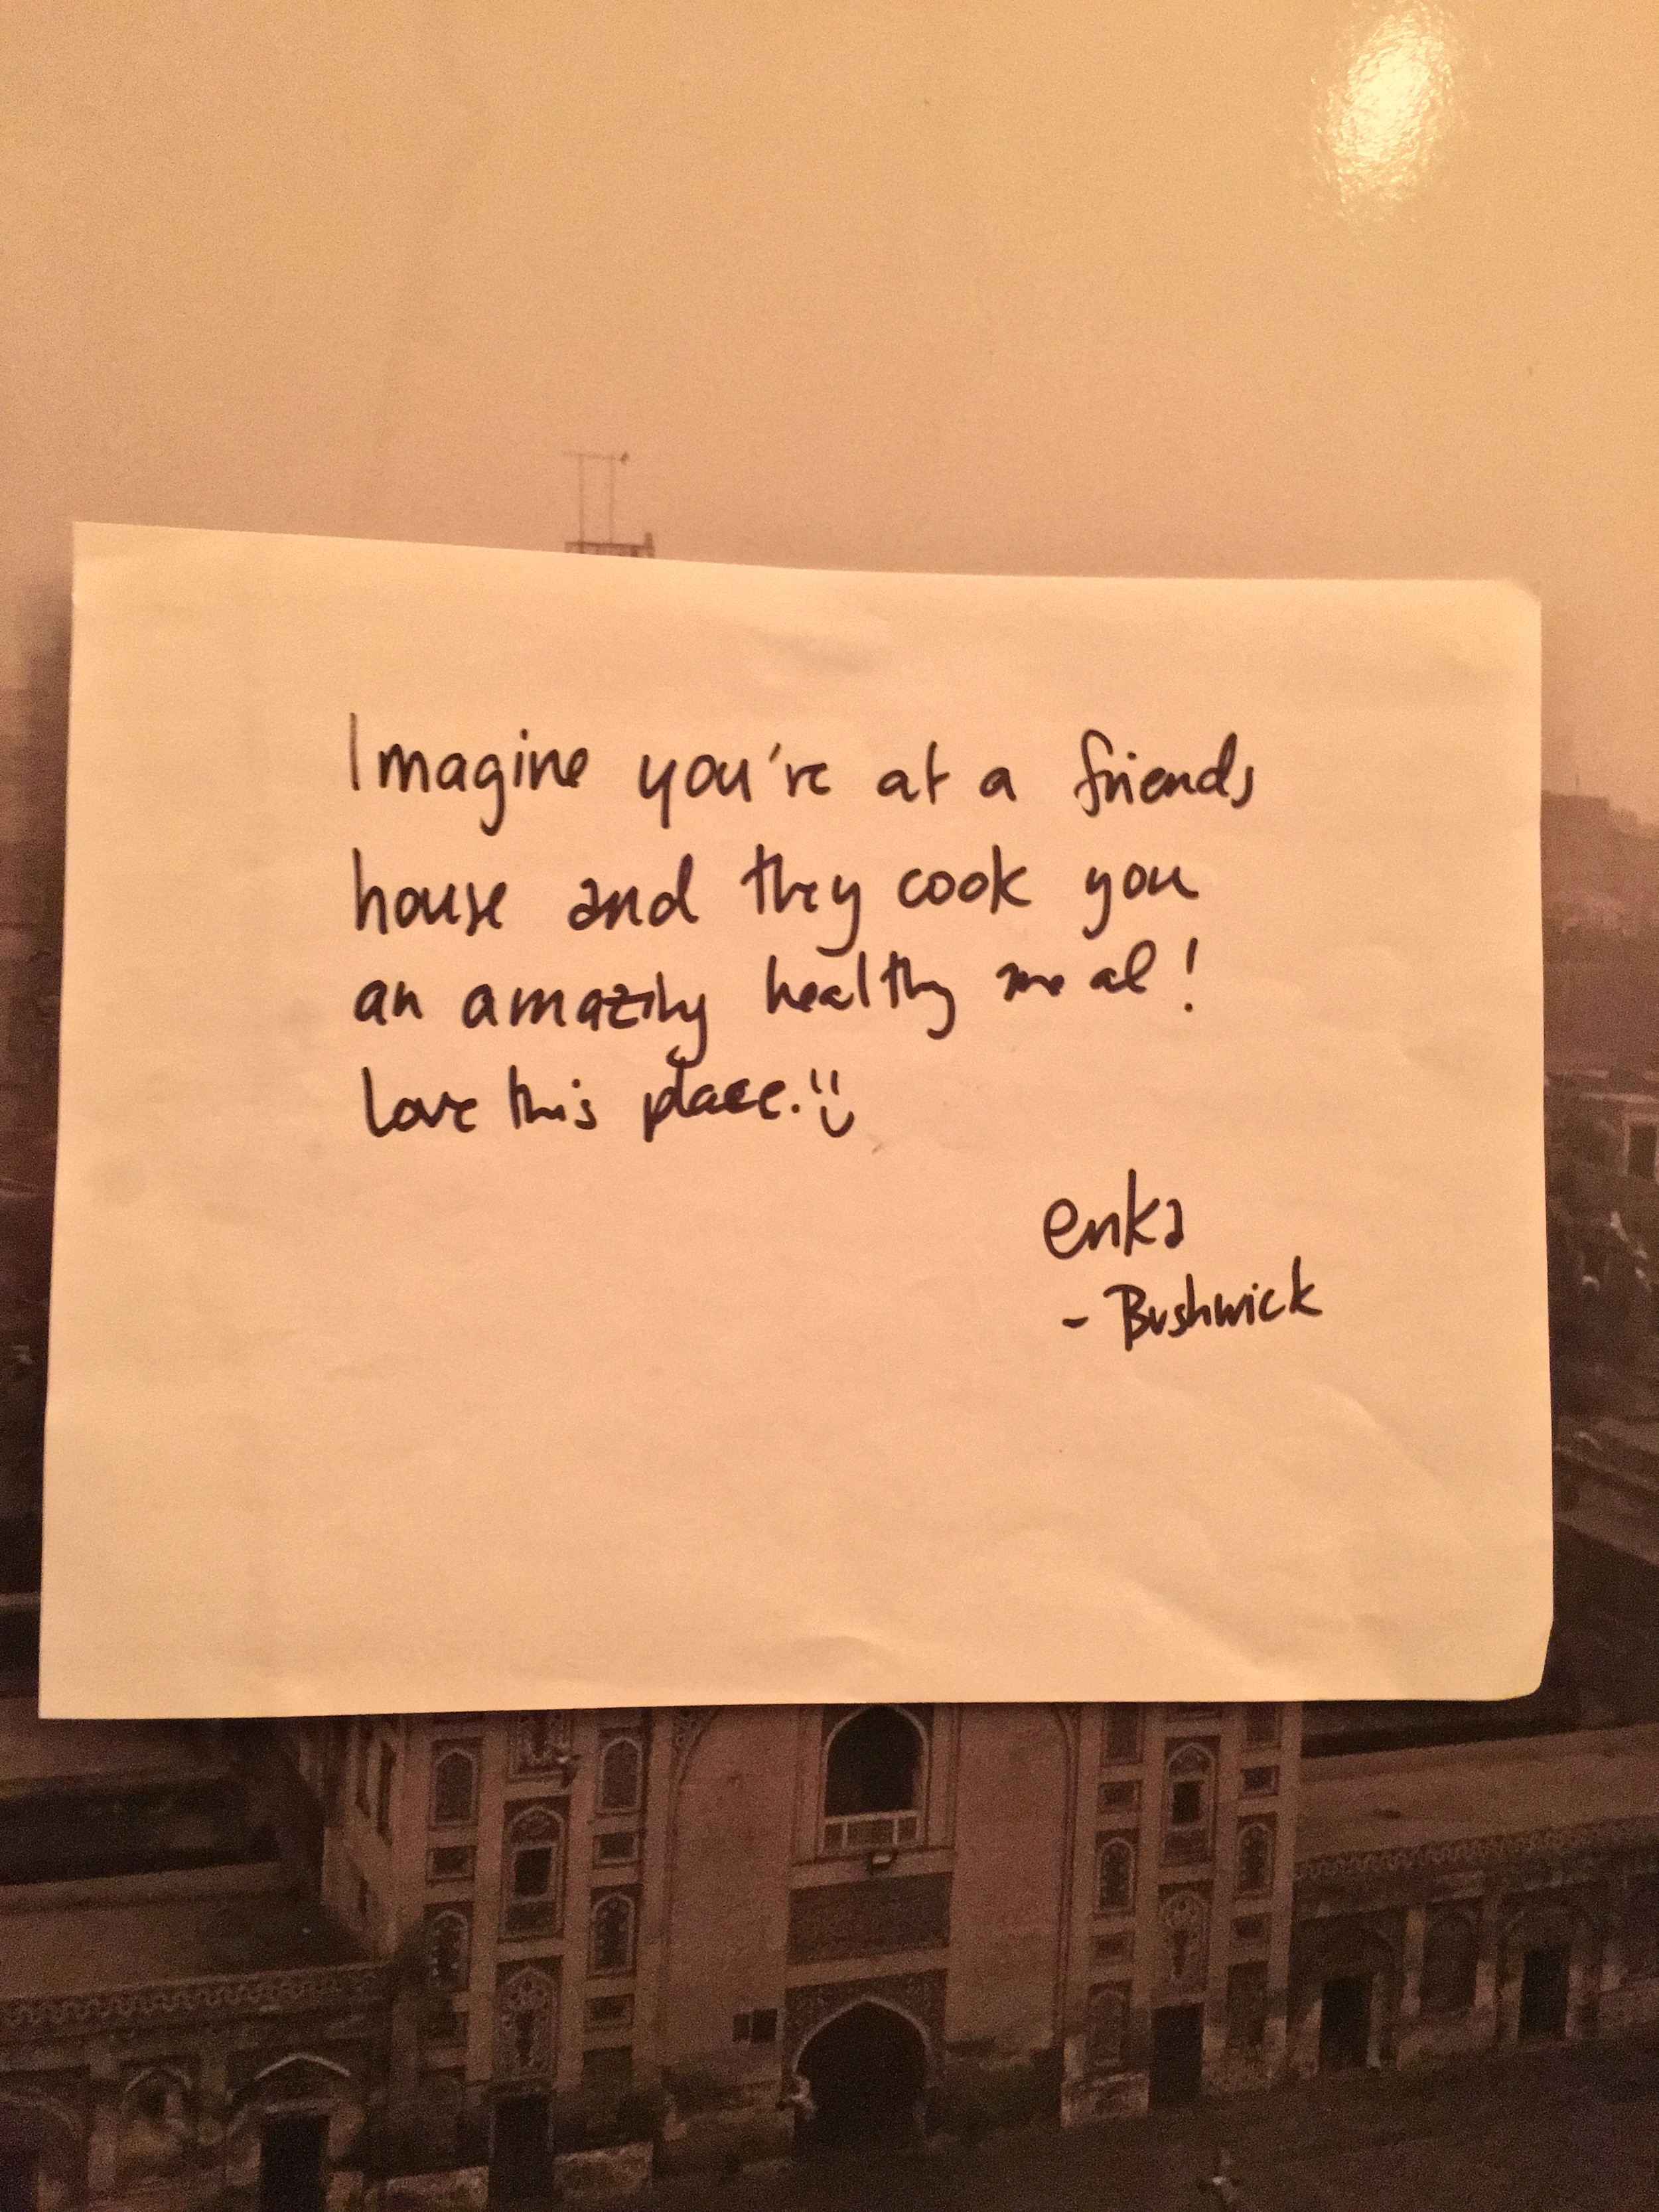 Imagine you're at a friends
house and they cook you
an amazing healthy meal!
Love this place. :)
enka
- Bushwick